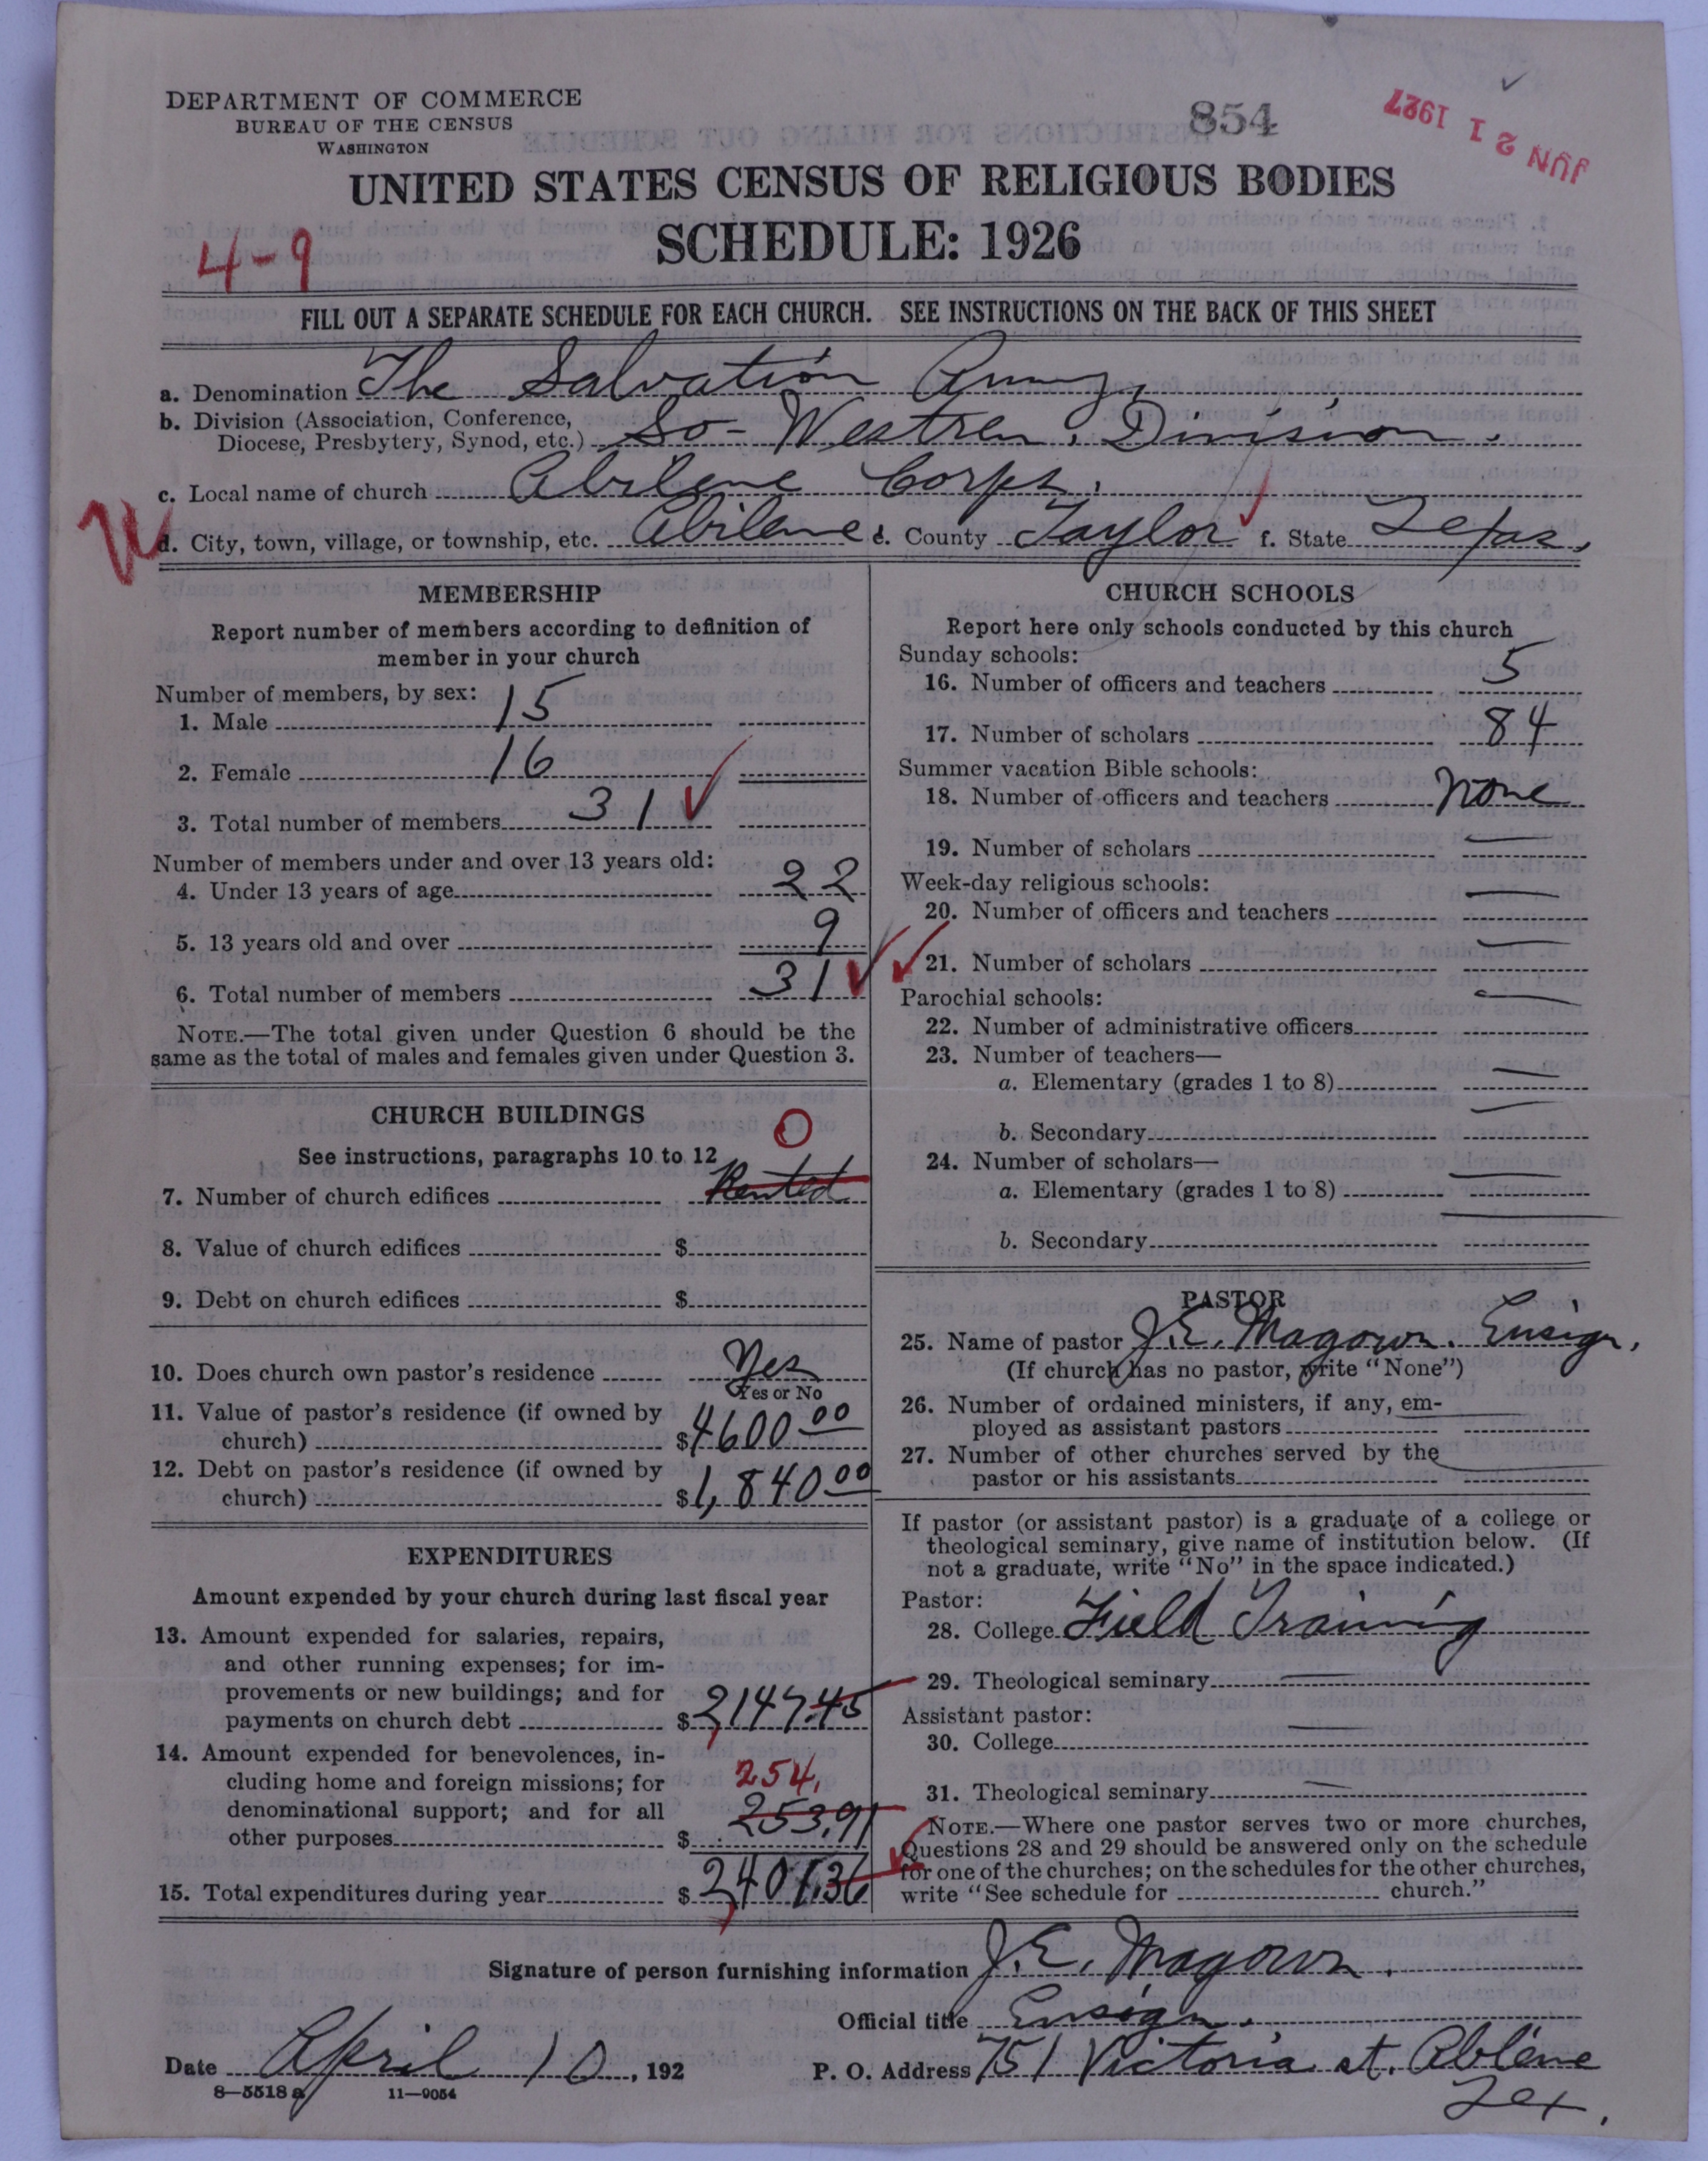 DEPARTMENT OF COMMERCE
BUREAU OF THE CENSUS
WASHINGTON
854
JUN 21 1927
UNITED STATES CENSUS OF RELIGIOUS BODIES
SCHEDULE: 1926
4-9
FILL OUT A SEPARATE SCHEDULE FOR EACH CHURCH. SEE INSTRUCTIONS ON THE BACK OF THIS SHEET
a. Denomination The Salvation Army,
b. Division (Association, Conference,
Diocese, Presbytery, Synod, etc.) So-Westren. Division.
c. Local name of church Abilene Corps.
d. City, town, village, or township, etc. Abilene e. County Taylor f. State Texas.
MEMBERSHIP
Report number of members according to definition of
member in your church
Number of members, by sex:
1. Male 15
2. Female 16
3. Total number of members 31
Number of members under and over 13 years old:
4. Under 13 years of age 22
5. 13 years old and over 9
6. Total number of members 31
NOTE.—The total given under Question 6 should be the
same as the total of males and females given under Question 3.
CHURCH BUILDINGS
See instructions, paragraphs 10 to 12
0
7. Number of church edifices Rented
8. Value of church edifices $
9. Debt on church edifices $
10. Does church own pastor's residence Yes
Yes or No
11. Value of pastor's residence (if owned by
church) $4600.00
12. Debt on pastor's residence (if owned by
church) $1,840.00
EXPENDITURES
Amount expended by your church during last fiscal year
13. Amount expended for salaries, repairs,
and other running expenses; for im-
provements or new buildings; and for
payments on church debt $2,147.45
14. Amount expended for benevolences, in-
cluding home and foreign missions; for 254.
denominational support; and for all 253.91
other purposes $
15. Total expenditures during year $2,401.36
CHURCH SCHOOLS
Report here only schools conducted by this church
Sunday schools:
16. Number of officers and teachers 5
17. Number of scholars 84
Summer vacation Bible schools:
18. Number of officers and teachers None
19. Number of scholars —
Week-day religious schools:
20. Number of officers and teachers —
21. Number of scholars —
Parochial schools:
22. Number of administrative officers —
23. Number of teachers—
a. Elementary (grades 1 to 8) —
b. Secondary —
24. Number of scholars—
a. Elementary (grades 1 to 8) —
b. Secondary —
PASTOR
25. Name of pastor J.E. Magown. Ensign.
(If church has no pastor, write "None")
26. Number of ordained ministers, if any, em-
ployed as assistant pastors —
27. Number of other churches served by the
pastor or his assistants —
If pastor (or assistant pastor) is a graduate of a college or
theological seminary, give name of institution below. (If
not a graduate, write "No" in the space indicated.)
Pastor:
28. College Field Training
29. Theological seminary —
Assistant pastor:
30. College —
31. Theological seminary —
NOTE.—Where one pastor serves two or more churches,
Questions 28 and 29 should be answered only on the schedule
for one of the churches; on the schedules for the other churches,
write "See schedule for church."
Signature of person furnishing information J.E. Magown.
Official title Ensign.
Date April 10, 192 P. O. Address 751 Victoria st. Ablene
Tex.
8—5518 a 11—9054